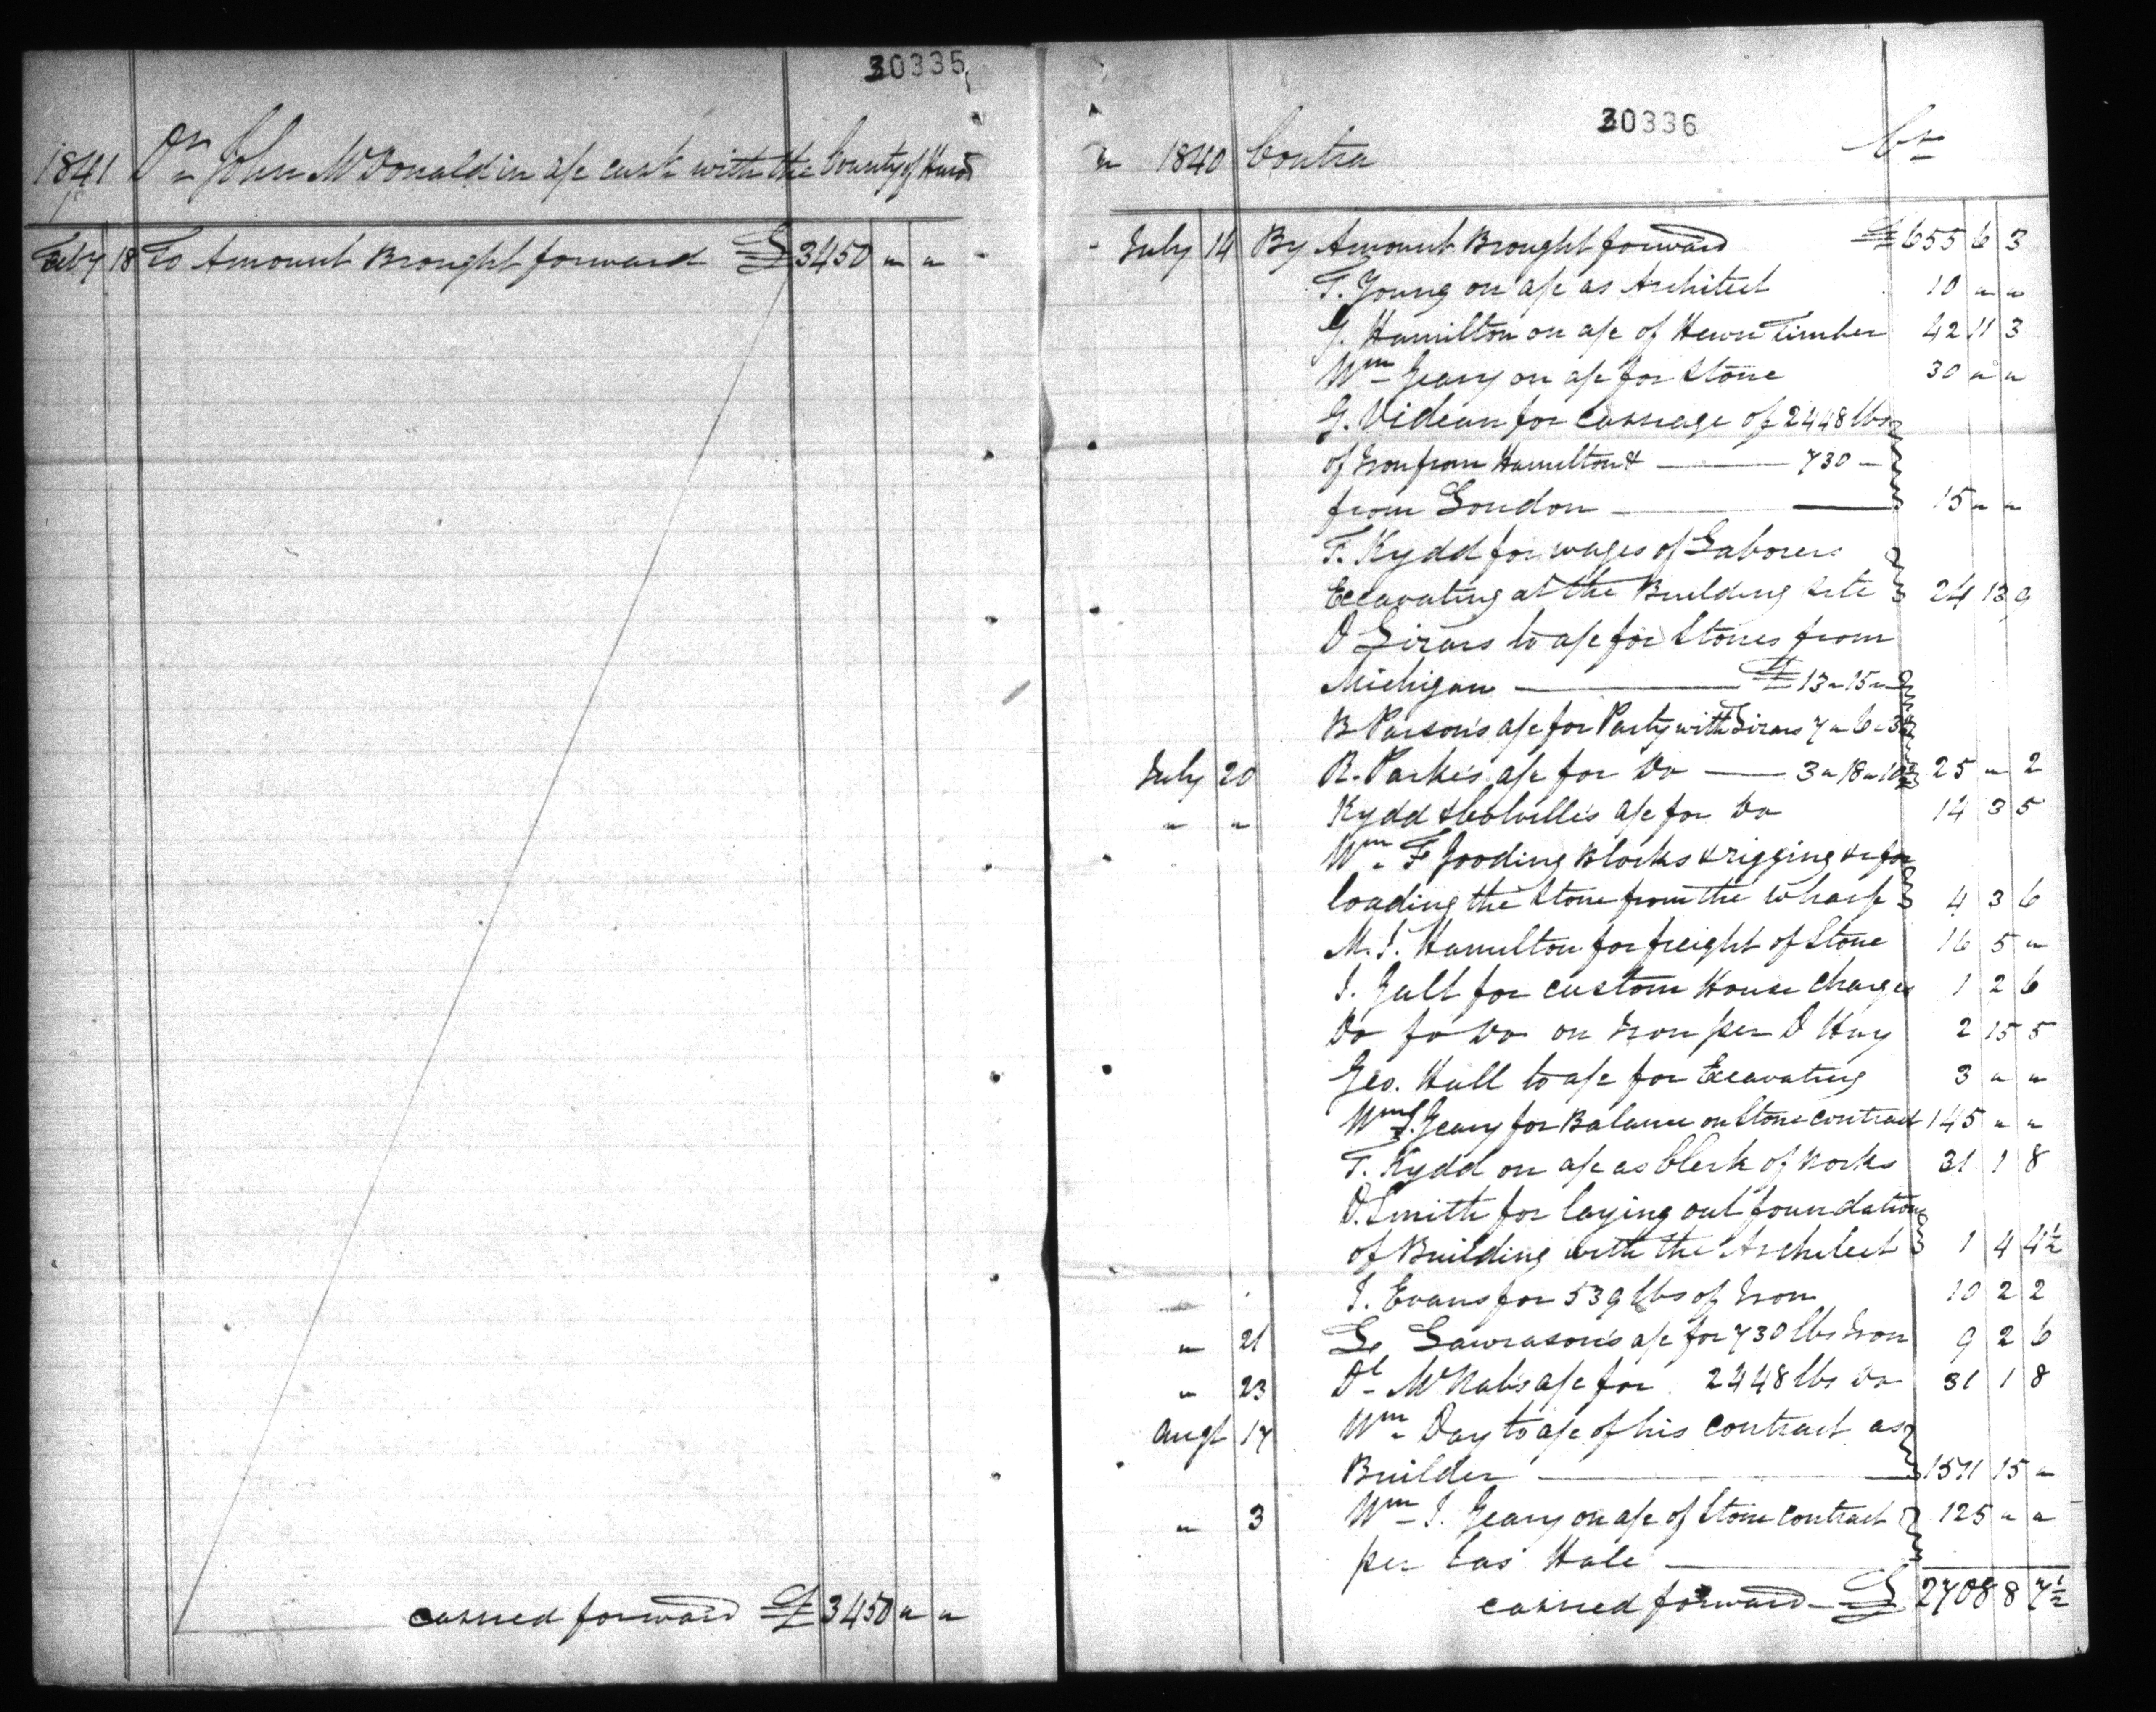 30335
1841 Dr John McDonald in a/c curt with the County of Huron
Feby 18 To Amount Brought forward £ 3450 " "
carried forward £ 3450 " "
30336
" 1840 Contra Cr
July 14 By Amount Brought forward £655 6 3
T. Young on a/c as Architect 10 " "
G. Hamilton on a/c of Hewn Timber 42 11 3
Wm Geary on a/c for Stone 30 " "
G. Videan for carriage of 2448 lbs
of Iron from Hamilton & — 730 —
from London — 15 " "
T. Kydd for wages of Laborers
Excavating at the Building site 24 13 9
D Lizars to a/c for Stones from
Michigan — £13"15"
B Parson's a/c for Party with Lizars 7"6"3½
July 20 R. Parke's a/c for Do — 3"18"10½ 25 " 2
" " Kydd & Colville's a/c for Do 14 3 5
Wm F Gooding Blocks & rigging &c for
loading the Stone from the wharf 4 3 6
M. S. Hamilton for freight of Stone 16 5 "
J. Galt for custom House charges 1 2 6
Do fo Do on Iron per D Hay 2 15 5
Geo. Hall to a/c for Excavating 3 " "
Wm J. Geary for Balance on Stone contract 145 " "
T. Kydd on a/c as Clerk of Works 31 1 8
D. Smith for laying out foundations
of Building with the Architect 1 4 4½
J. Evans for 539 lbs of Iron 10 2 2
" 21 L Lawrason's a/c for 730 lbs Iron 9 2 6
" 23 Dl McNab's a/c for 2448 lbs Do 31 1 8
Augt 17 Wm Day to a/c of his contract as
Builder — 1571 15 "
" 3 Wm J. Geary on a/c of Stone contract 125 " "
per Chas Hale —
carried forward — £ 2708 8 7½